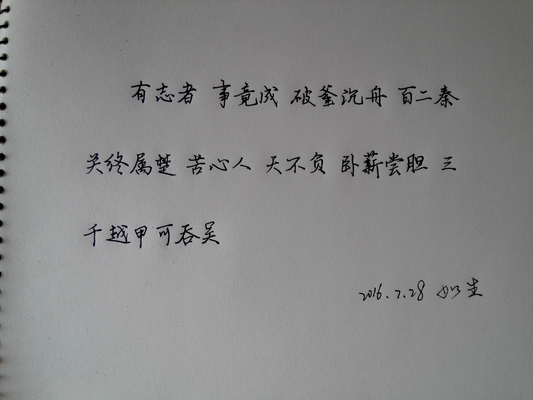 有志者 事竟成 破釜沉舟 百二秦
关终属楚 苦心人 天不负 卧薪尝胆 三
千越甲可吞吴
2016.7.28 如生